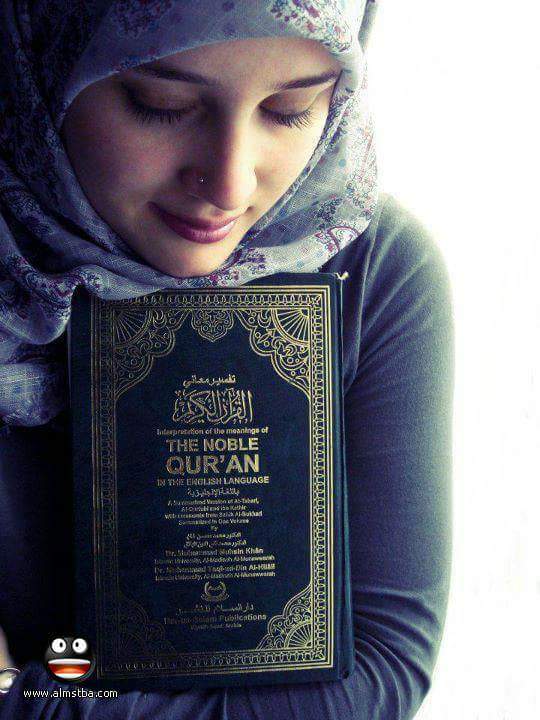 تفسير معاني
القرآن الكريم
Interpretation of the meanings of
THE NOBLE
QUR'AN
IN THE ENGLISH LANGUAGE
باللغة الإنجليزية
A Summarized Version of At-Tabari,
Al-Qurtubi and Ibn Kathir
with comments from Sahih Al-Bukhari
Summarized in One Volume
By
Dr. Muhammad Muhsin Khan
Islamic University, Al-Madinah Al-Munawwarah
Dr. Muhammad Taqi-ud-Din Al-Hilali
Islamic University, Al-Madinah Al-Munawwarah
دار السلام للنشر
Dar-us-Salam Publications
Riyadh Saudi Arabia
www.almstba.com